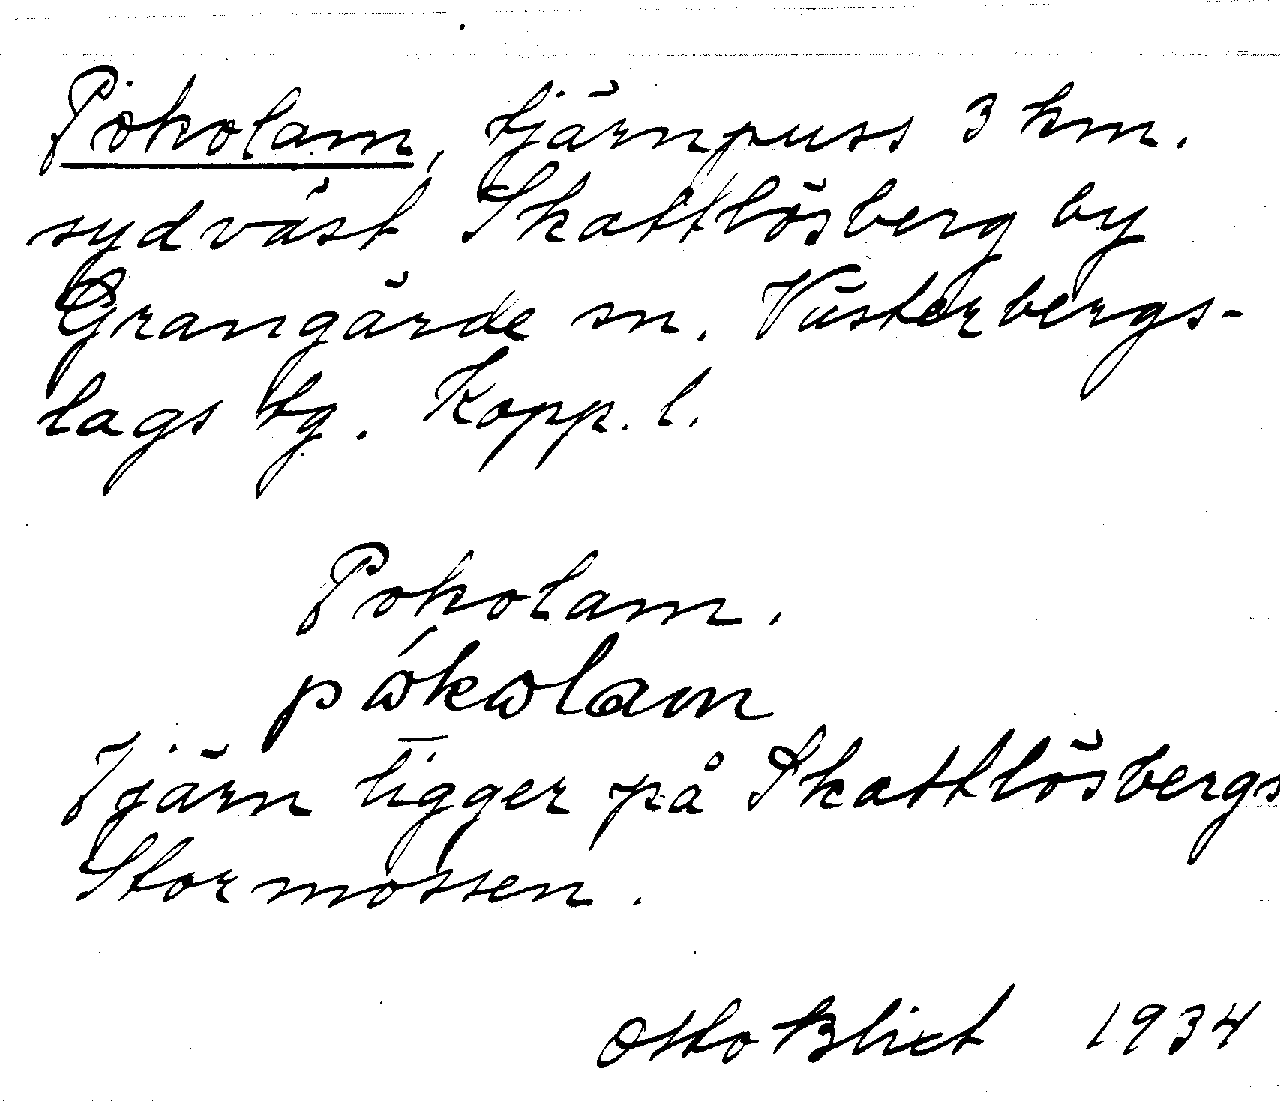 Pokolam, tjärnpuss 3 km.
sydväst Skattlösberg by
Grangärde sn. Västerbergs-
lags tg. Kopp. l.
Pokolam.
pώkωlam
Tjärn ligger på Skattlösbergs
Stormossen.
Otto Blixt 1934